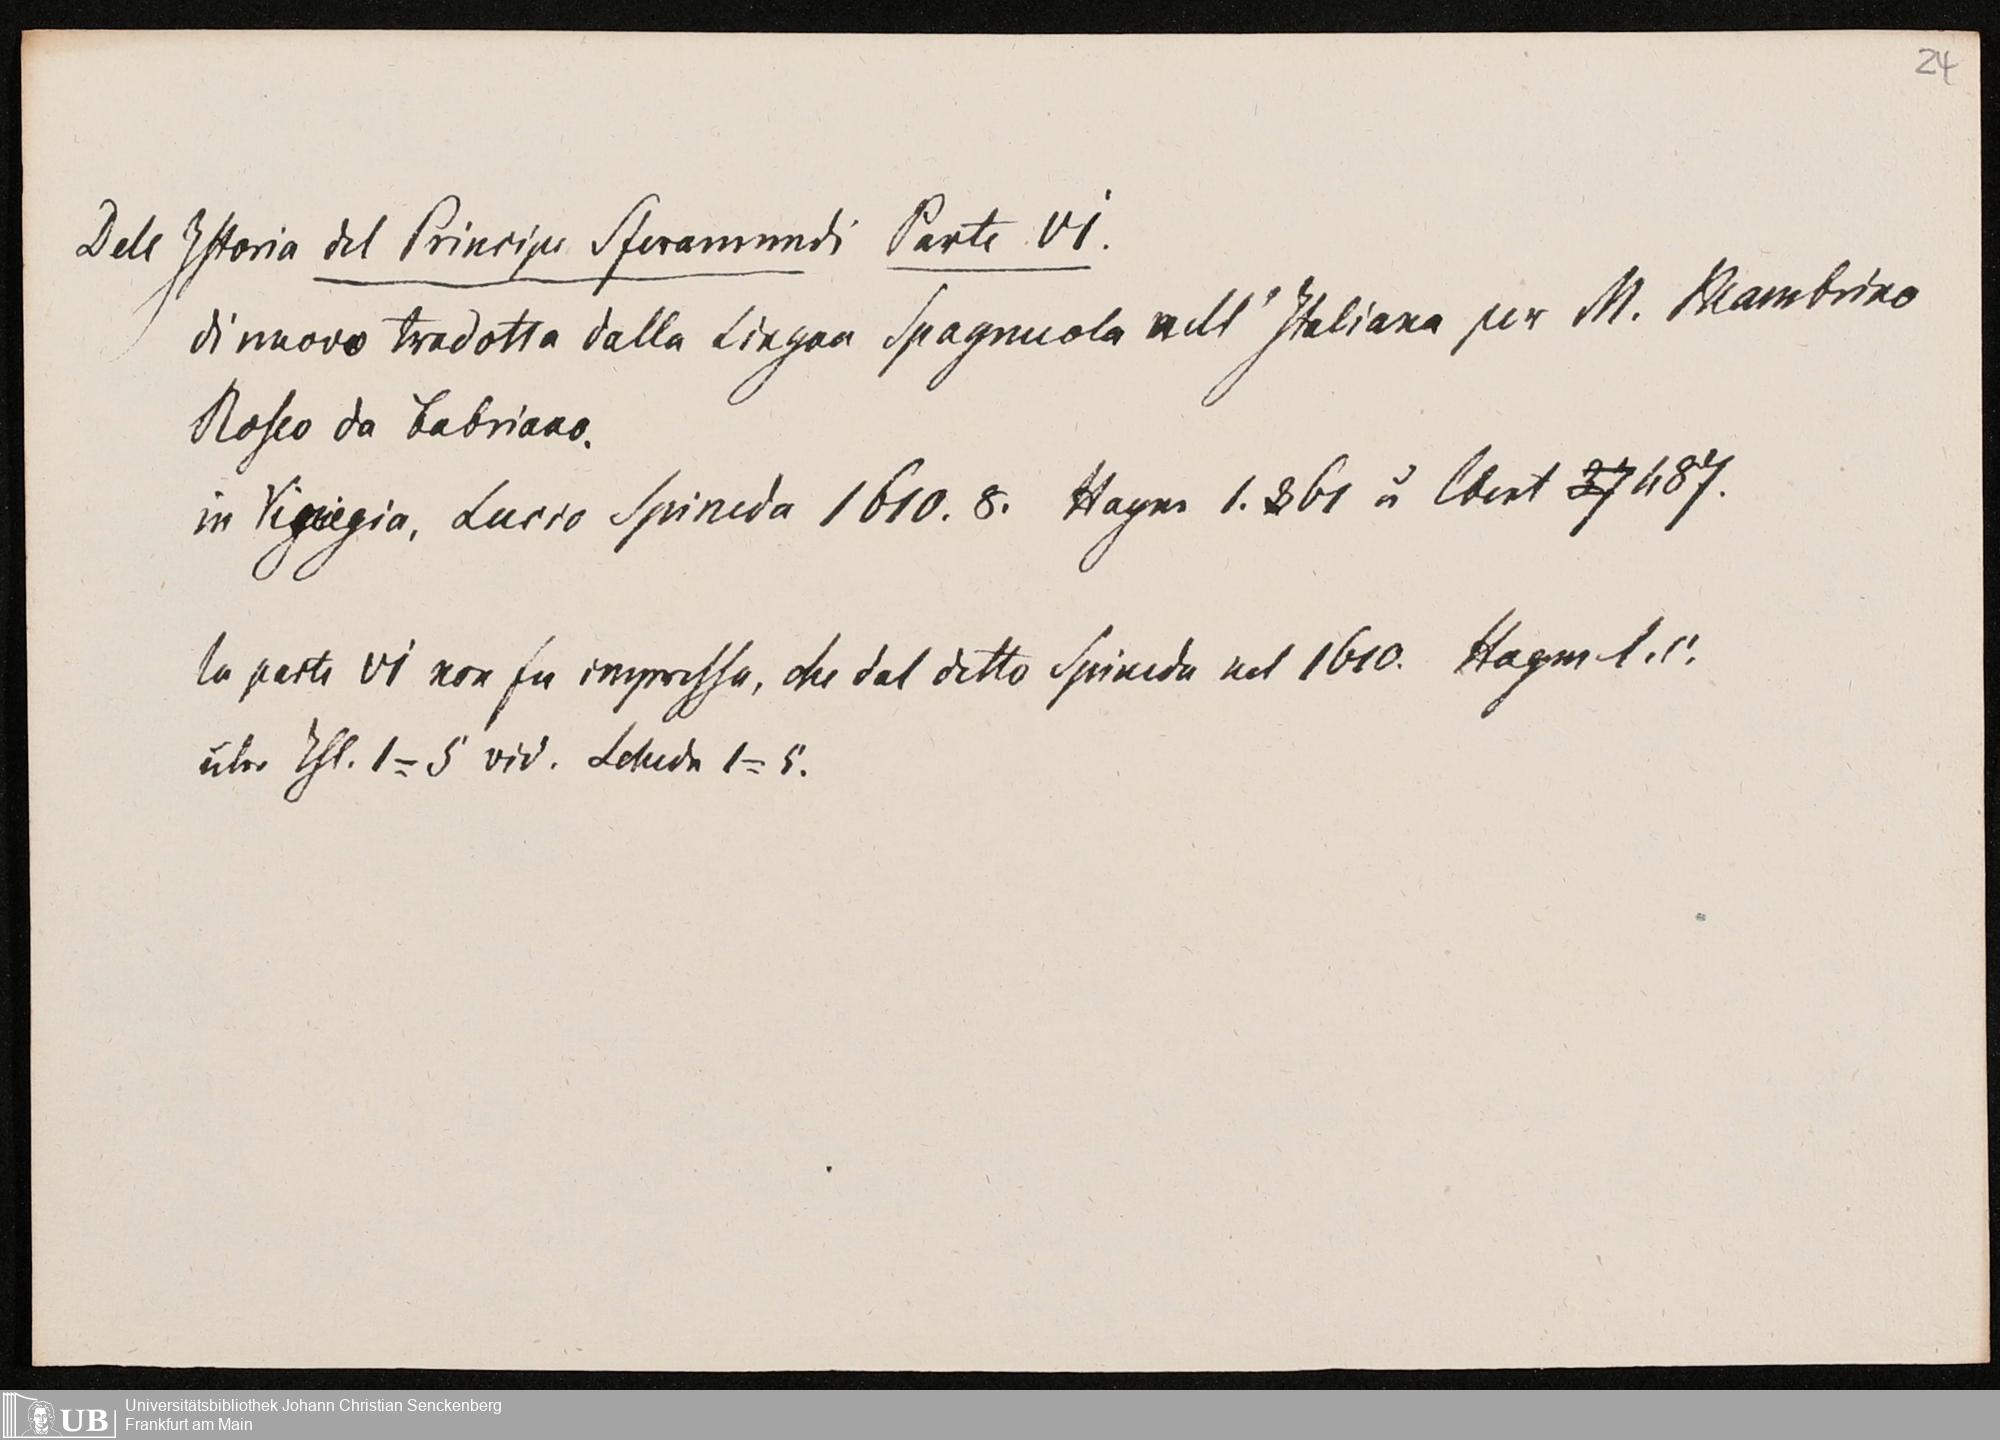 24
Dell Istoria del Principe Sferamundi Parte VI.
di nuovo tradotta dalla Lingua Spagnuola nell' Italiana per M. Mambrino
Roseo da Fabriano.
in Vinegia, Lucio Spineda 1610. 8. Haym 1. 261 u Ebert 487.
la parte VI non fu impressa, che dal detto Spineda nel 1610. Haym l.c.
über Thl. 1=5 vid. Scheda 1=5.
UB Universitätsbibliothek Johann Christian Senckenberg
Frankfurt am Main